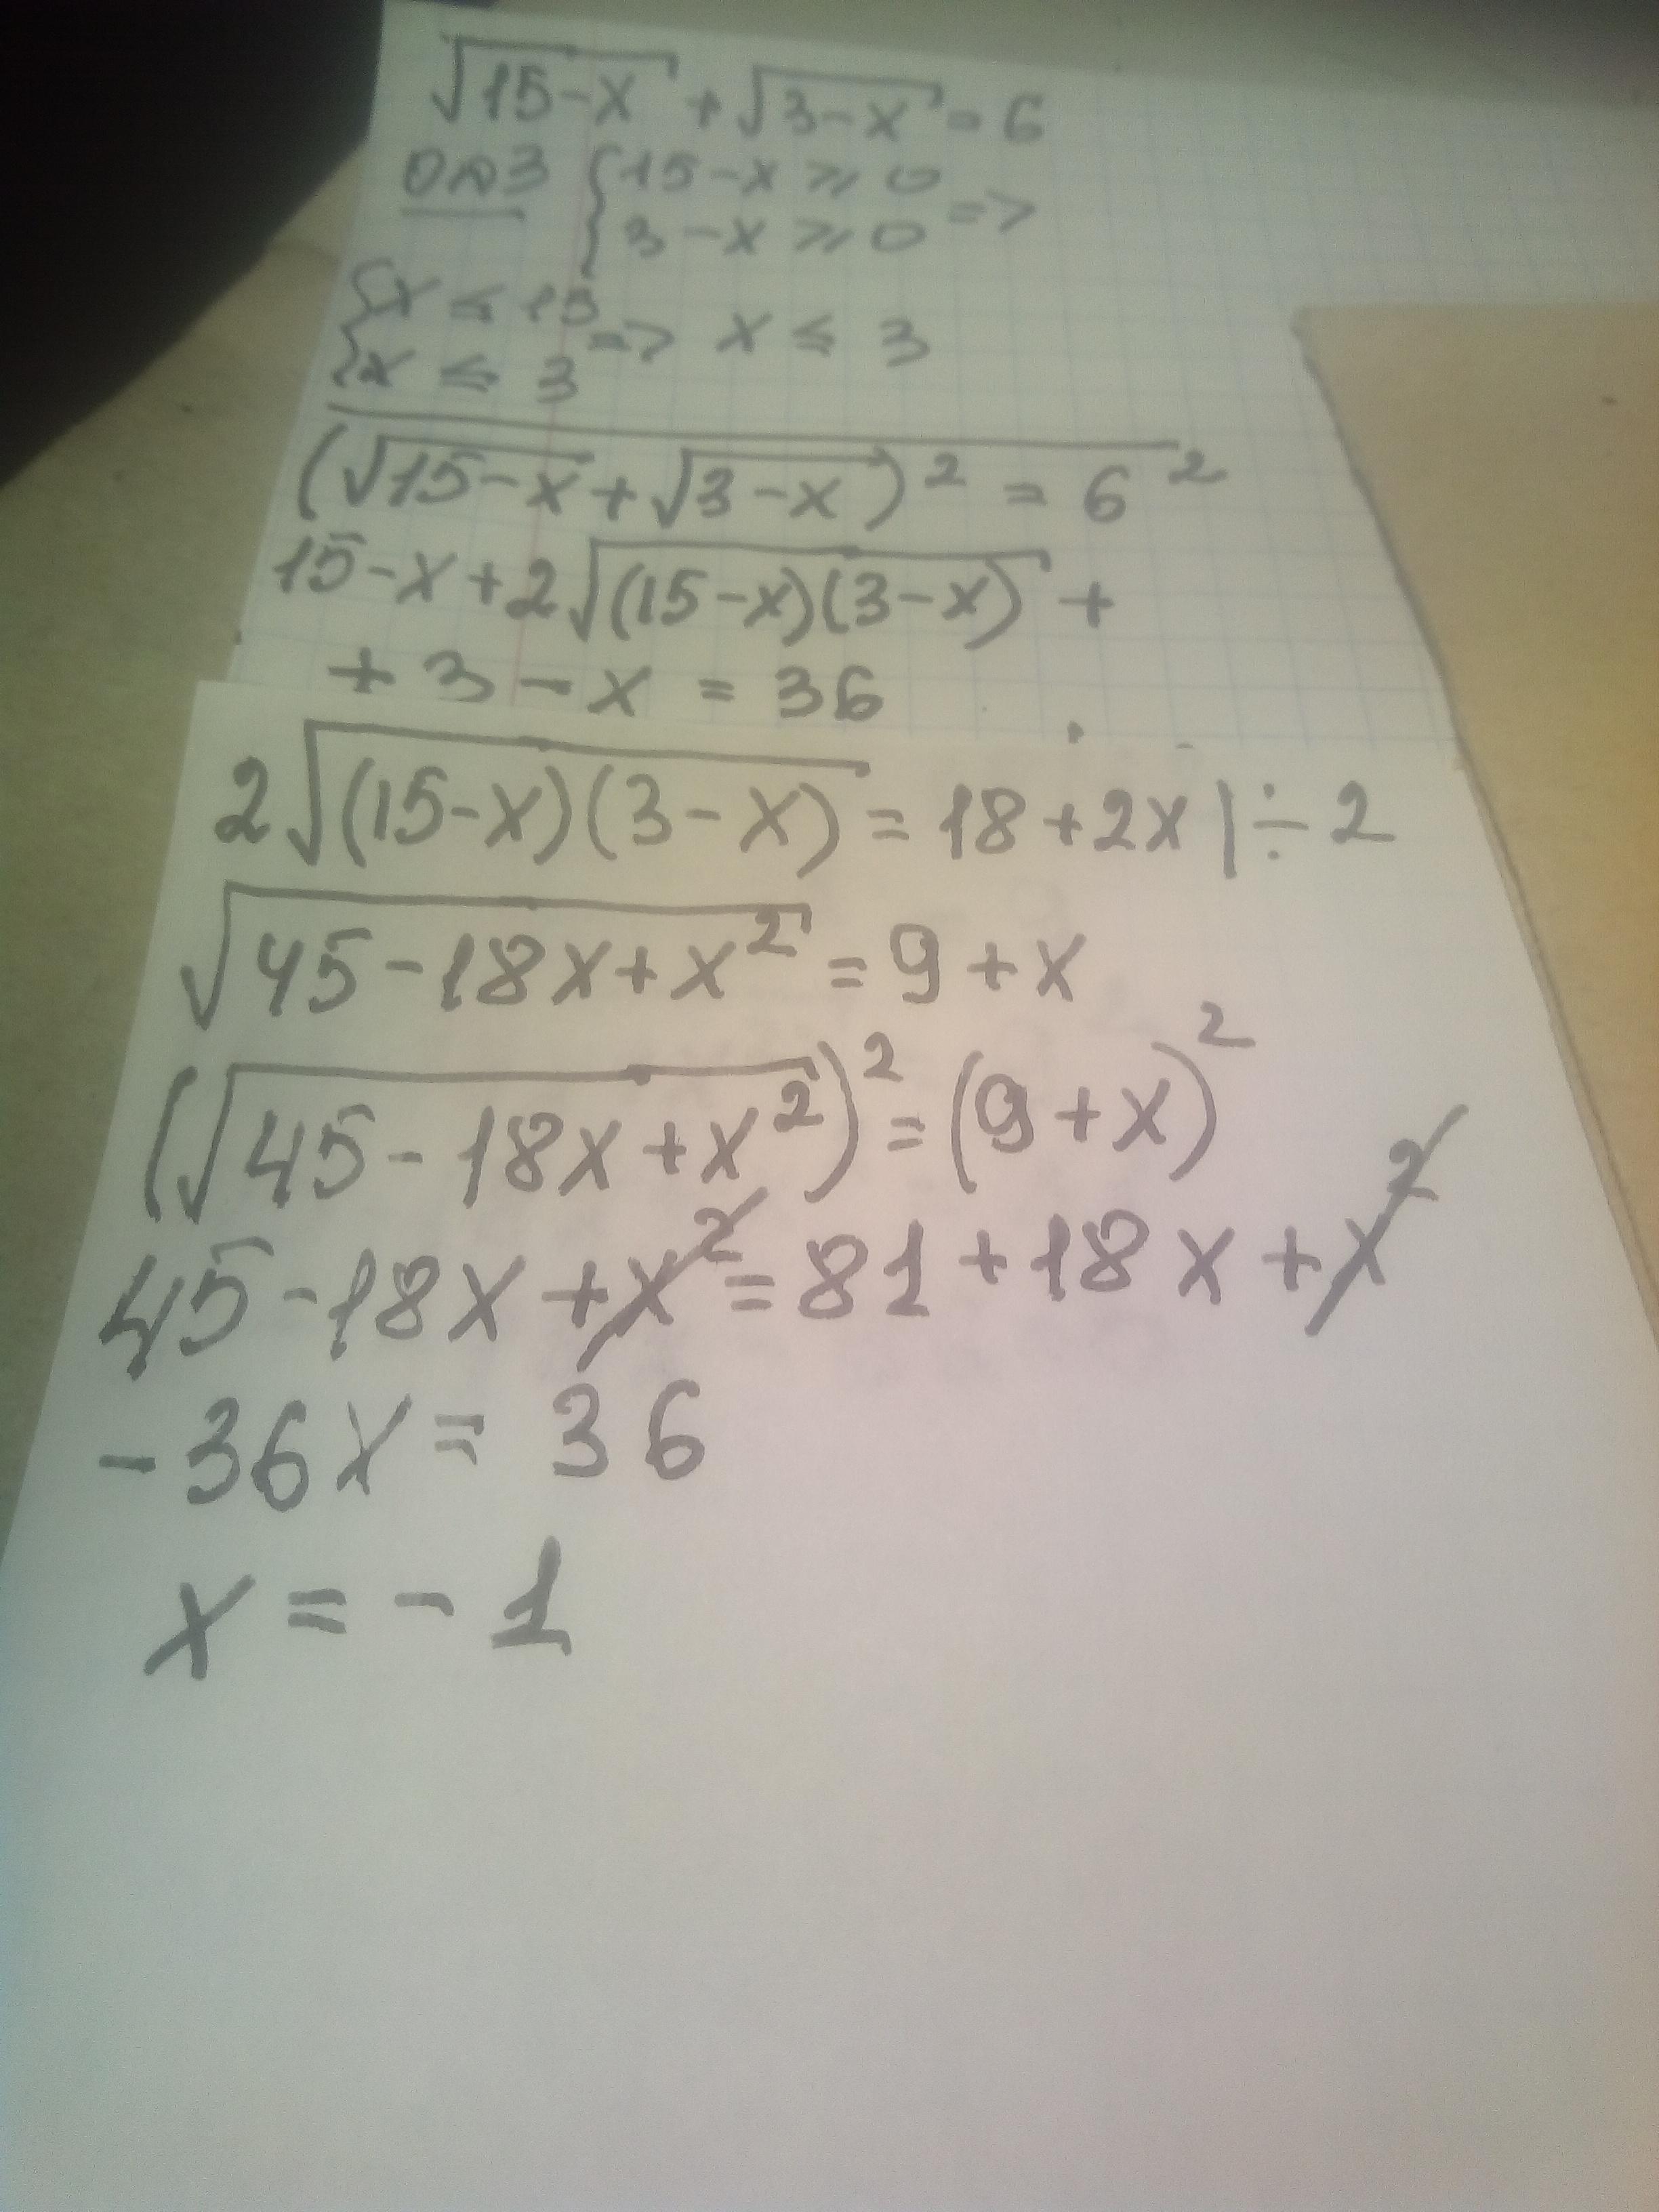 √15-x + √3-x = 6
ОДЗ {15-x ⩾ 0
3-x ⩾ 0 =>
{x ≤ 15
x ≤ 3 => x ≤ 3
(√15-x + √3-x)² = 6²
15-x+2√(15-x)(3-x) +
+ 3 - x = 36
2√(15-x)(3-x) = 18+2x | ÷ 2
√45-18x+x² = 9+x
(√45-18x+x²)² = (9+x)²
45-18x+x² = 81+18x+x²
-36x = 36
x = -1